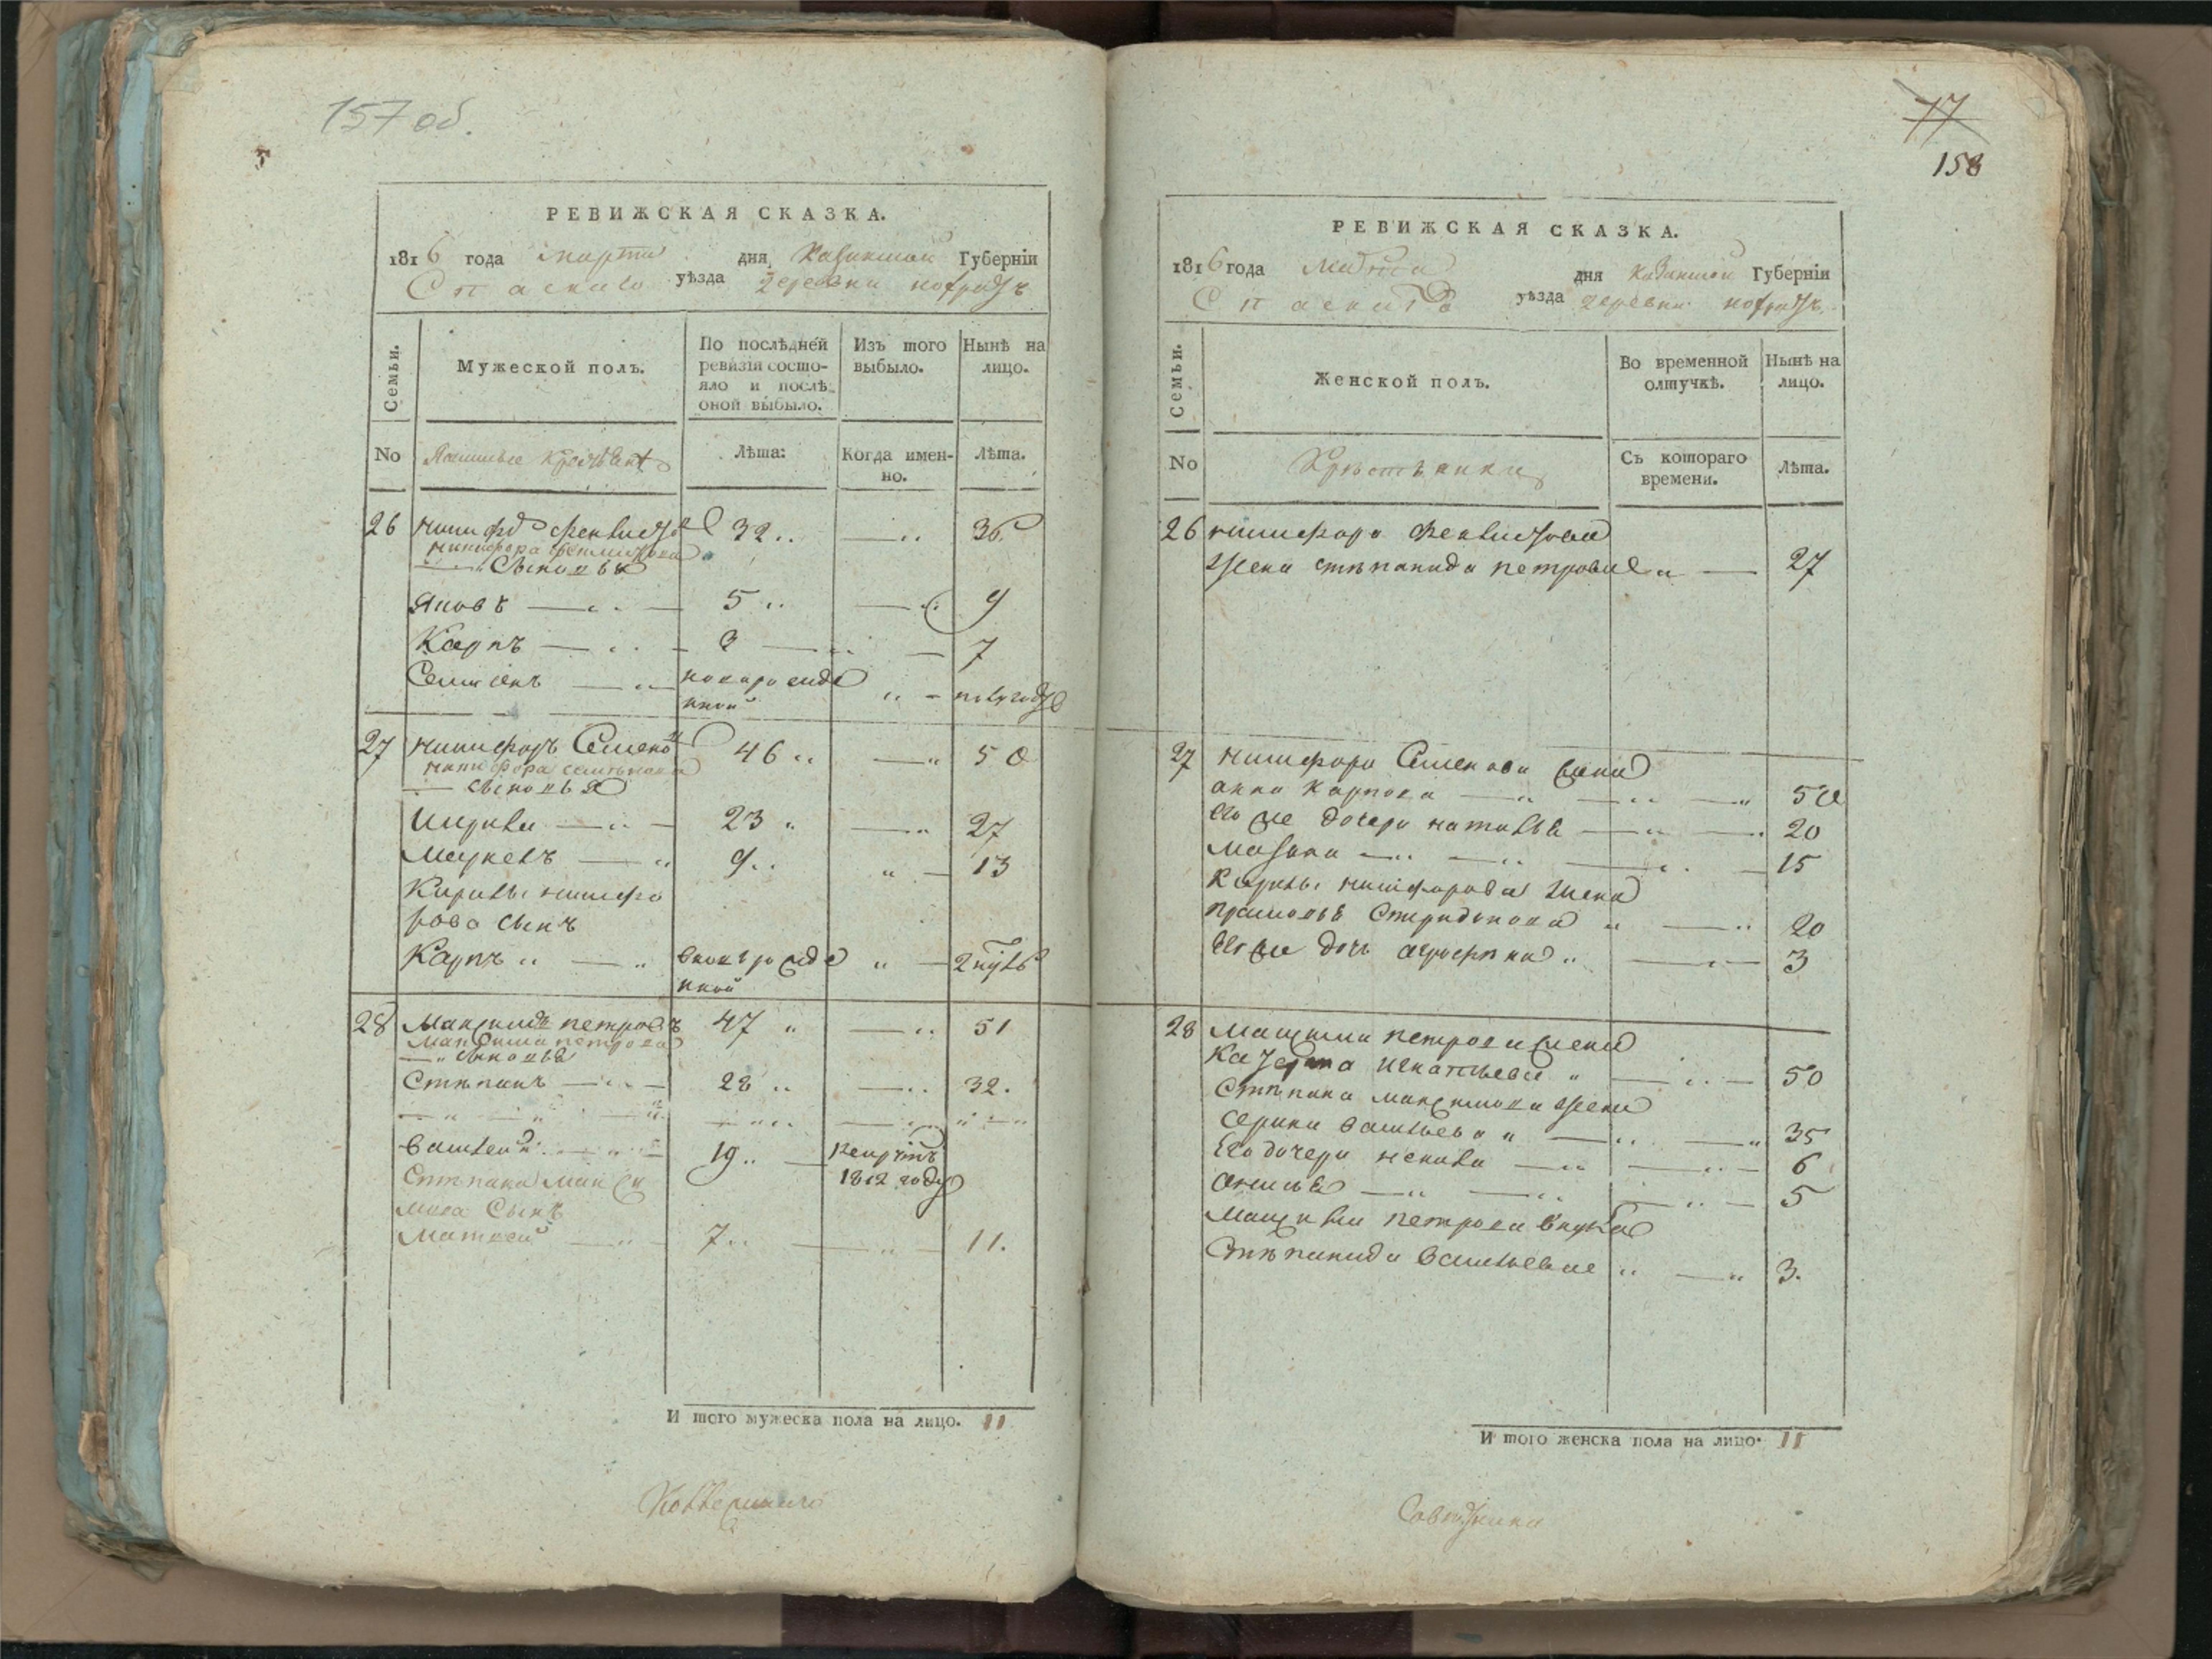 157 об.
5
РЕВИЖСКАЯ СКАЗКА.
1816 года марта дня Казанской Губернїи
Спаскаго уѣзда деревни
Семьи.
Мужеской полъ.
По послѣдней ревизїи состояло и послѣ оной выбыло.
Изъ того выбыло.
Нынѣ на лицо.
No
Лѣта:
Когда именно.
Лѣта.
26 никифоръ феклистовъ 32 36
никифора феклистова
сыновья
Яковъ 5 9
Карпъ 3 7
Семионъ новорожденной полугоду
27 никифоръ Семеновъ 46 50
никифора семенова
сыновья
Кирила 23 27
Маркелъ 9 13
Кирилы никифо
рова сынъ
Карпъ вновьрожденной 2 нѣдель
28 Максимъ петровъ 47 51
Максима петрова
сыновья
Степанъ 28 32.
василей 19 рекрутъ
1812 году
Степана Макси
мова Сынъ
Матвей 7 11.
И того мужеска пола на лицо. 11
77
158
РЕВИЖСКАЯ СКАЗКА.
1816 года марта дня казанской Губернїи
Спаскаго уѣзда деревни
Семьи.
Женской полъ.
Во временной отлучкѣ.
Нынѣ на лицо.
No
Крестьянки
Съ котораго времени.
Лѣта.
26 никифора феклистова
жена степанида петрова 27
27 никифора Семенова жена
анна карпова 50
Его же дочери наталья 20
Мавра 15
Кирилы никифорова жена
прасковья Спиридонова 20
Его же дочь агрофина 3
28 Максима петрова жена
Катерина игнатьева 50
Степана максимова жена
васильева 35
Его дочери 6
анисья 5
Максима петрова внука
Степанида васильева 3.
И того женска пола на лицо. 11